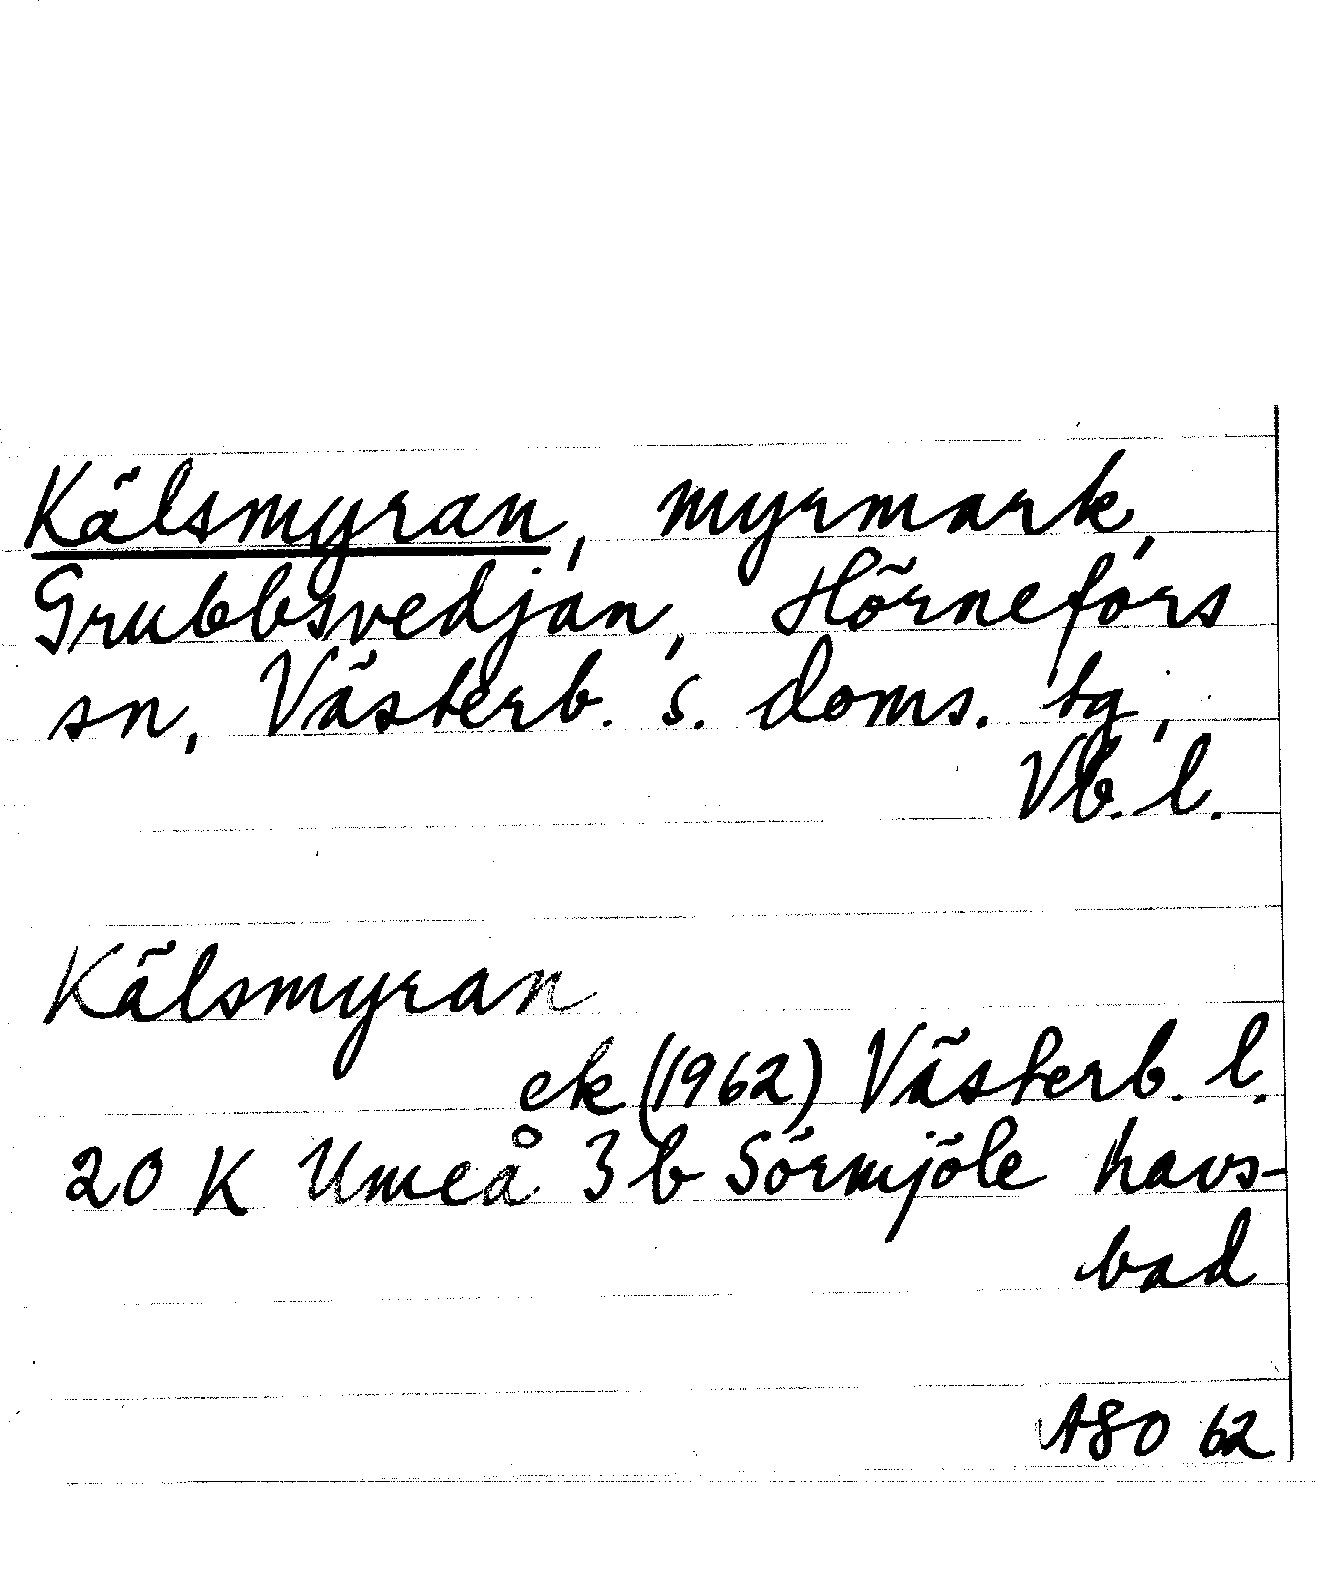 Kälsmyran, myrmark,
Grubbsvedjan, Hörnefors
sn, Västerb. s. doms. tg,
Vb. l.
Kälsmyran
ek (1962) Västerb. l.
20 K Umeå 3b Sörmjöle havs-
bad
ASO 62